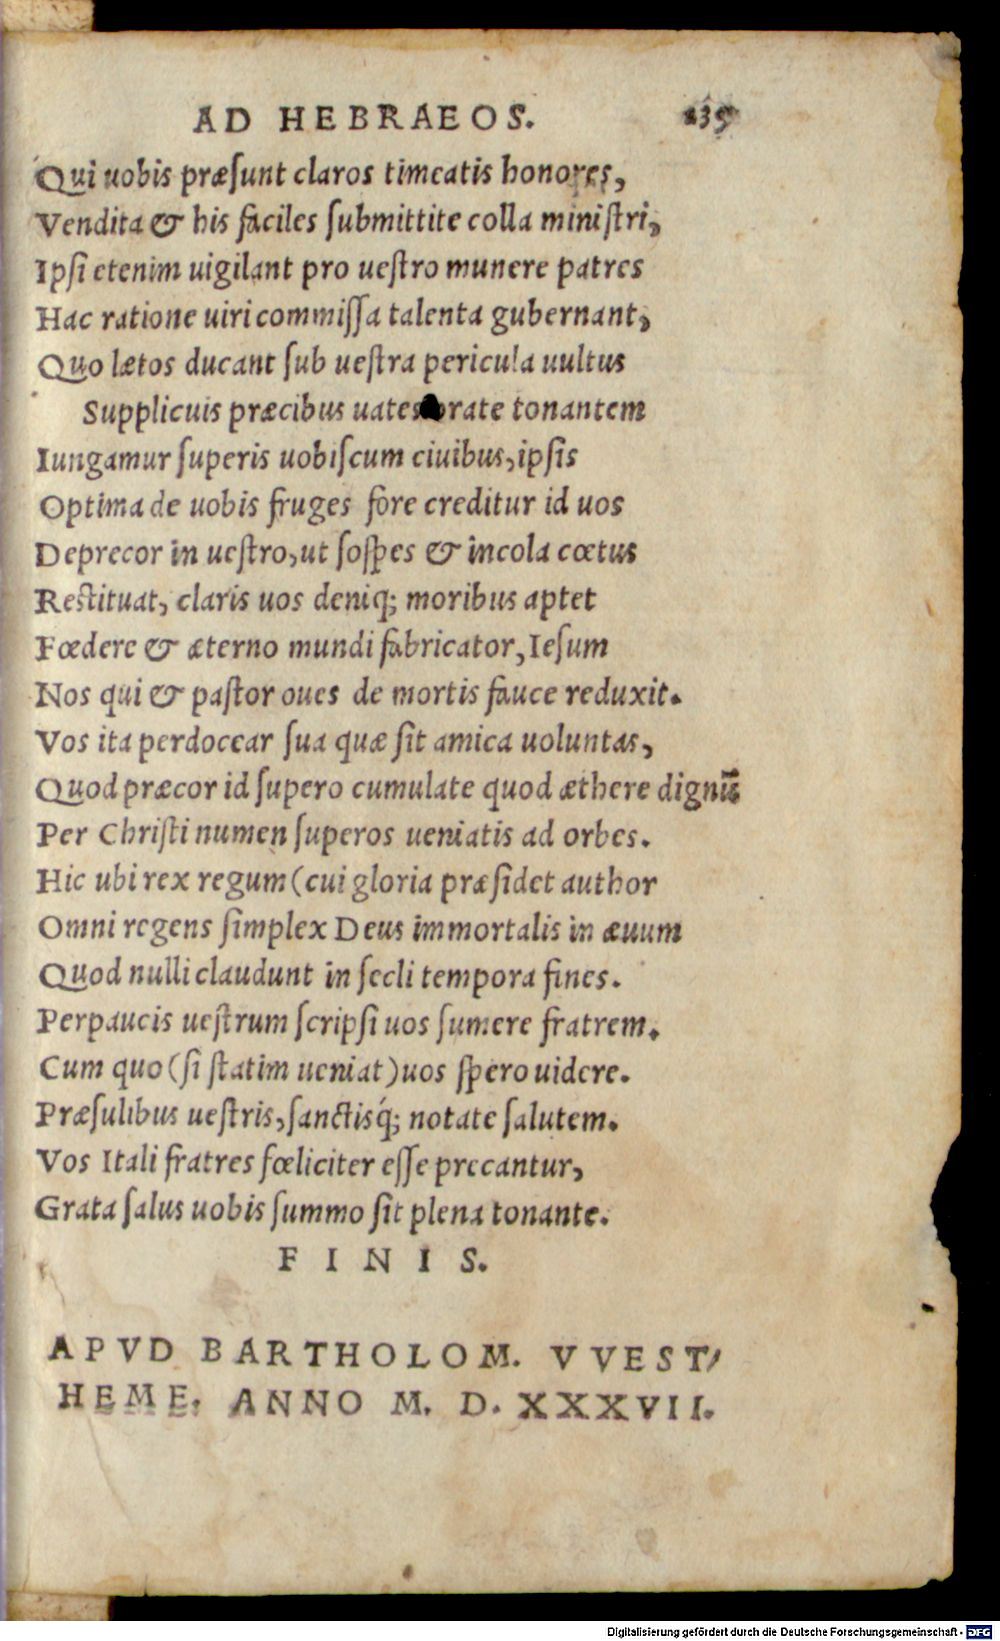 AD HEBRAEOS. 235
Qui uobis præsunt claros timeatis honores,
Vendita & his faciles submittite colla ministri,
Ipsi etenim uigilant pro uestro munere patres
Hac ratione uiri commissa talenta gubernant,
Quo lætos ducant sub uestra pericula uultus
Supplicuis præcibus uates orate tonantem
Iungamur superis uobiscum ciuibus, ipsis
Optima de uobis fruges fore creditur id uos
Deprecor in uestro, ut sospes & incola cœtus
Restituat, claris uos deniq; moribus aptet
Fœdere & æterno mundi fabricator, Iesum
Nos qui & pastor oues de mortis fauce reduxit.
Vos ita perdocear sua quæ sit amica uoluntas,
Quod præcor id supero cumulate quod æthere dignũ
Per Christi numen superos ueniatis ad orbes.
Hic ubi rex regum (cui gloria præsidet author
Omni regens simplex Deus immortalis in æuum
Quod nulli claudunt in secli tempora fines.
Perpaucis uestrum scripsi uos sumere fratrem.
Cum quo (si statim ueniat) uos spero uidere.
Præsulibus uestris, sanctisq́; notate salutem.
Vos Itali fratres fœliciter esse precantur,
Grata salus uobis summo sit plena tonante.
FINIS.
APVD BARTHOLOM. VVEST/
HEME. ANNO M. D. XXXVII.
Digitalisierung gefördert durch die Deutsche Forschungsgemeinschaft - DFG